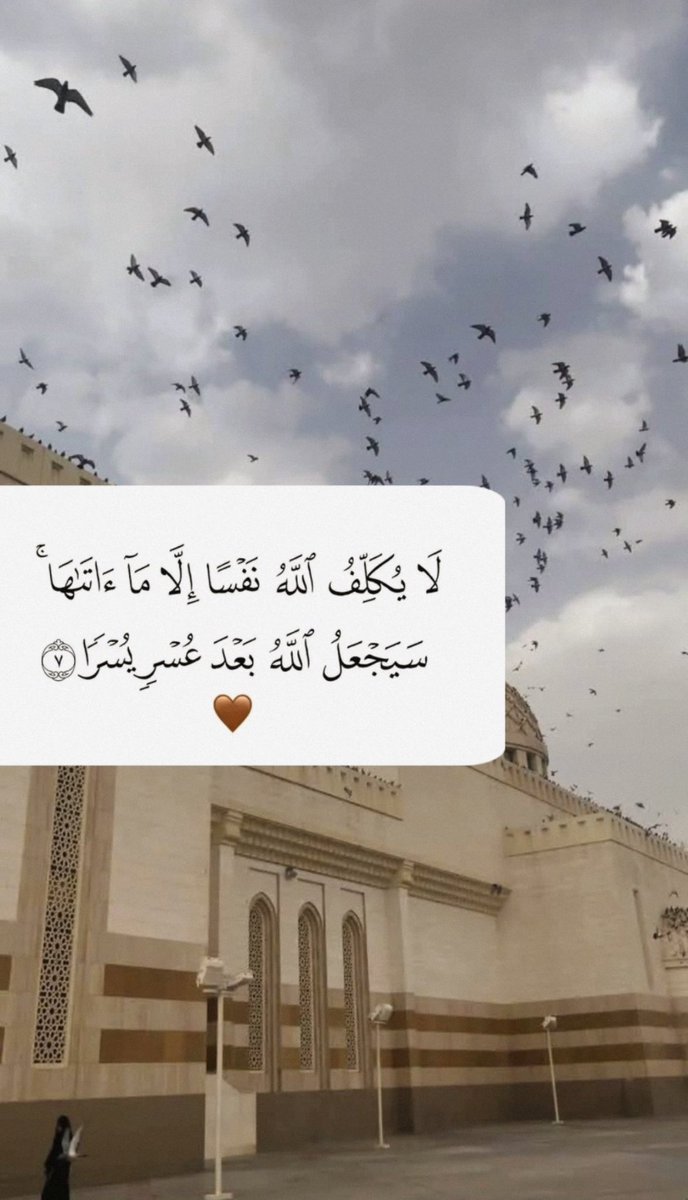 لَا يُكَلِّفُ ٱللَّهُ نَفۡسًا إِلَّا مَآ ءَاتَىٰهَاۚ
سَيَجۡعَلُ ٱللَّهُ بَعۡدَ عُسۡرٖ يُسۡرٗا ٧